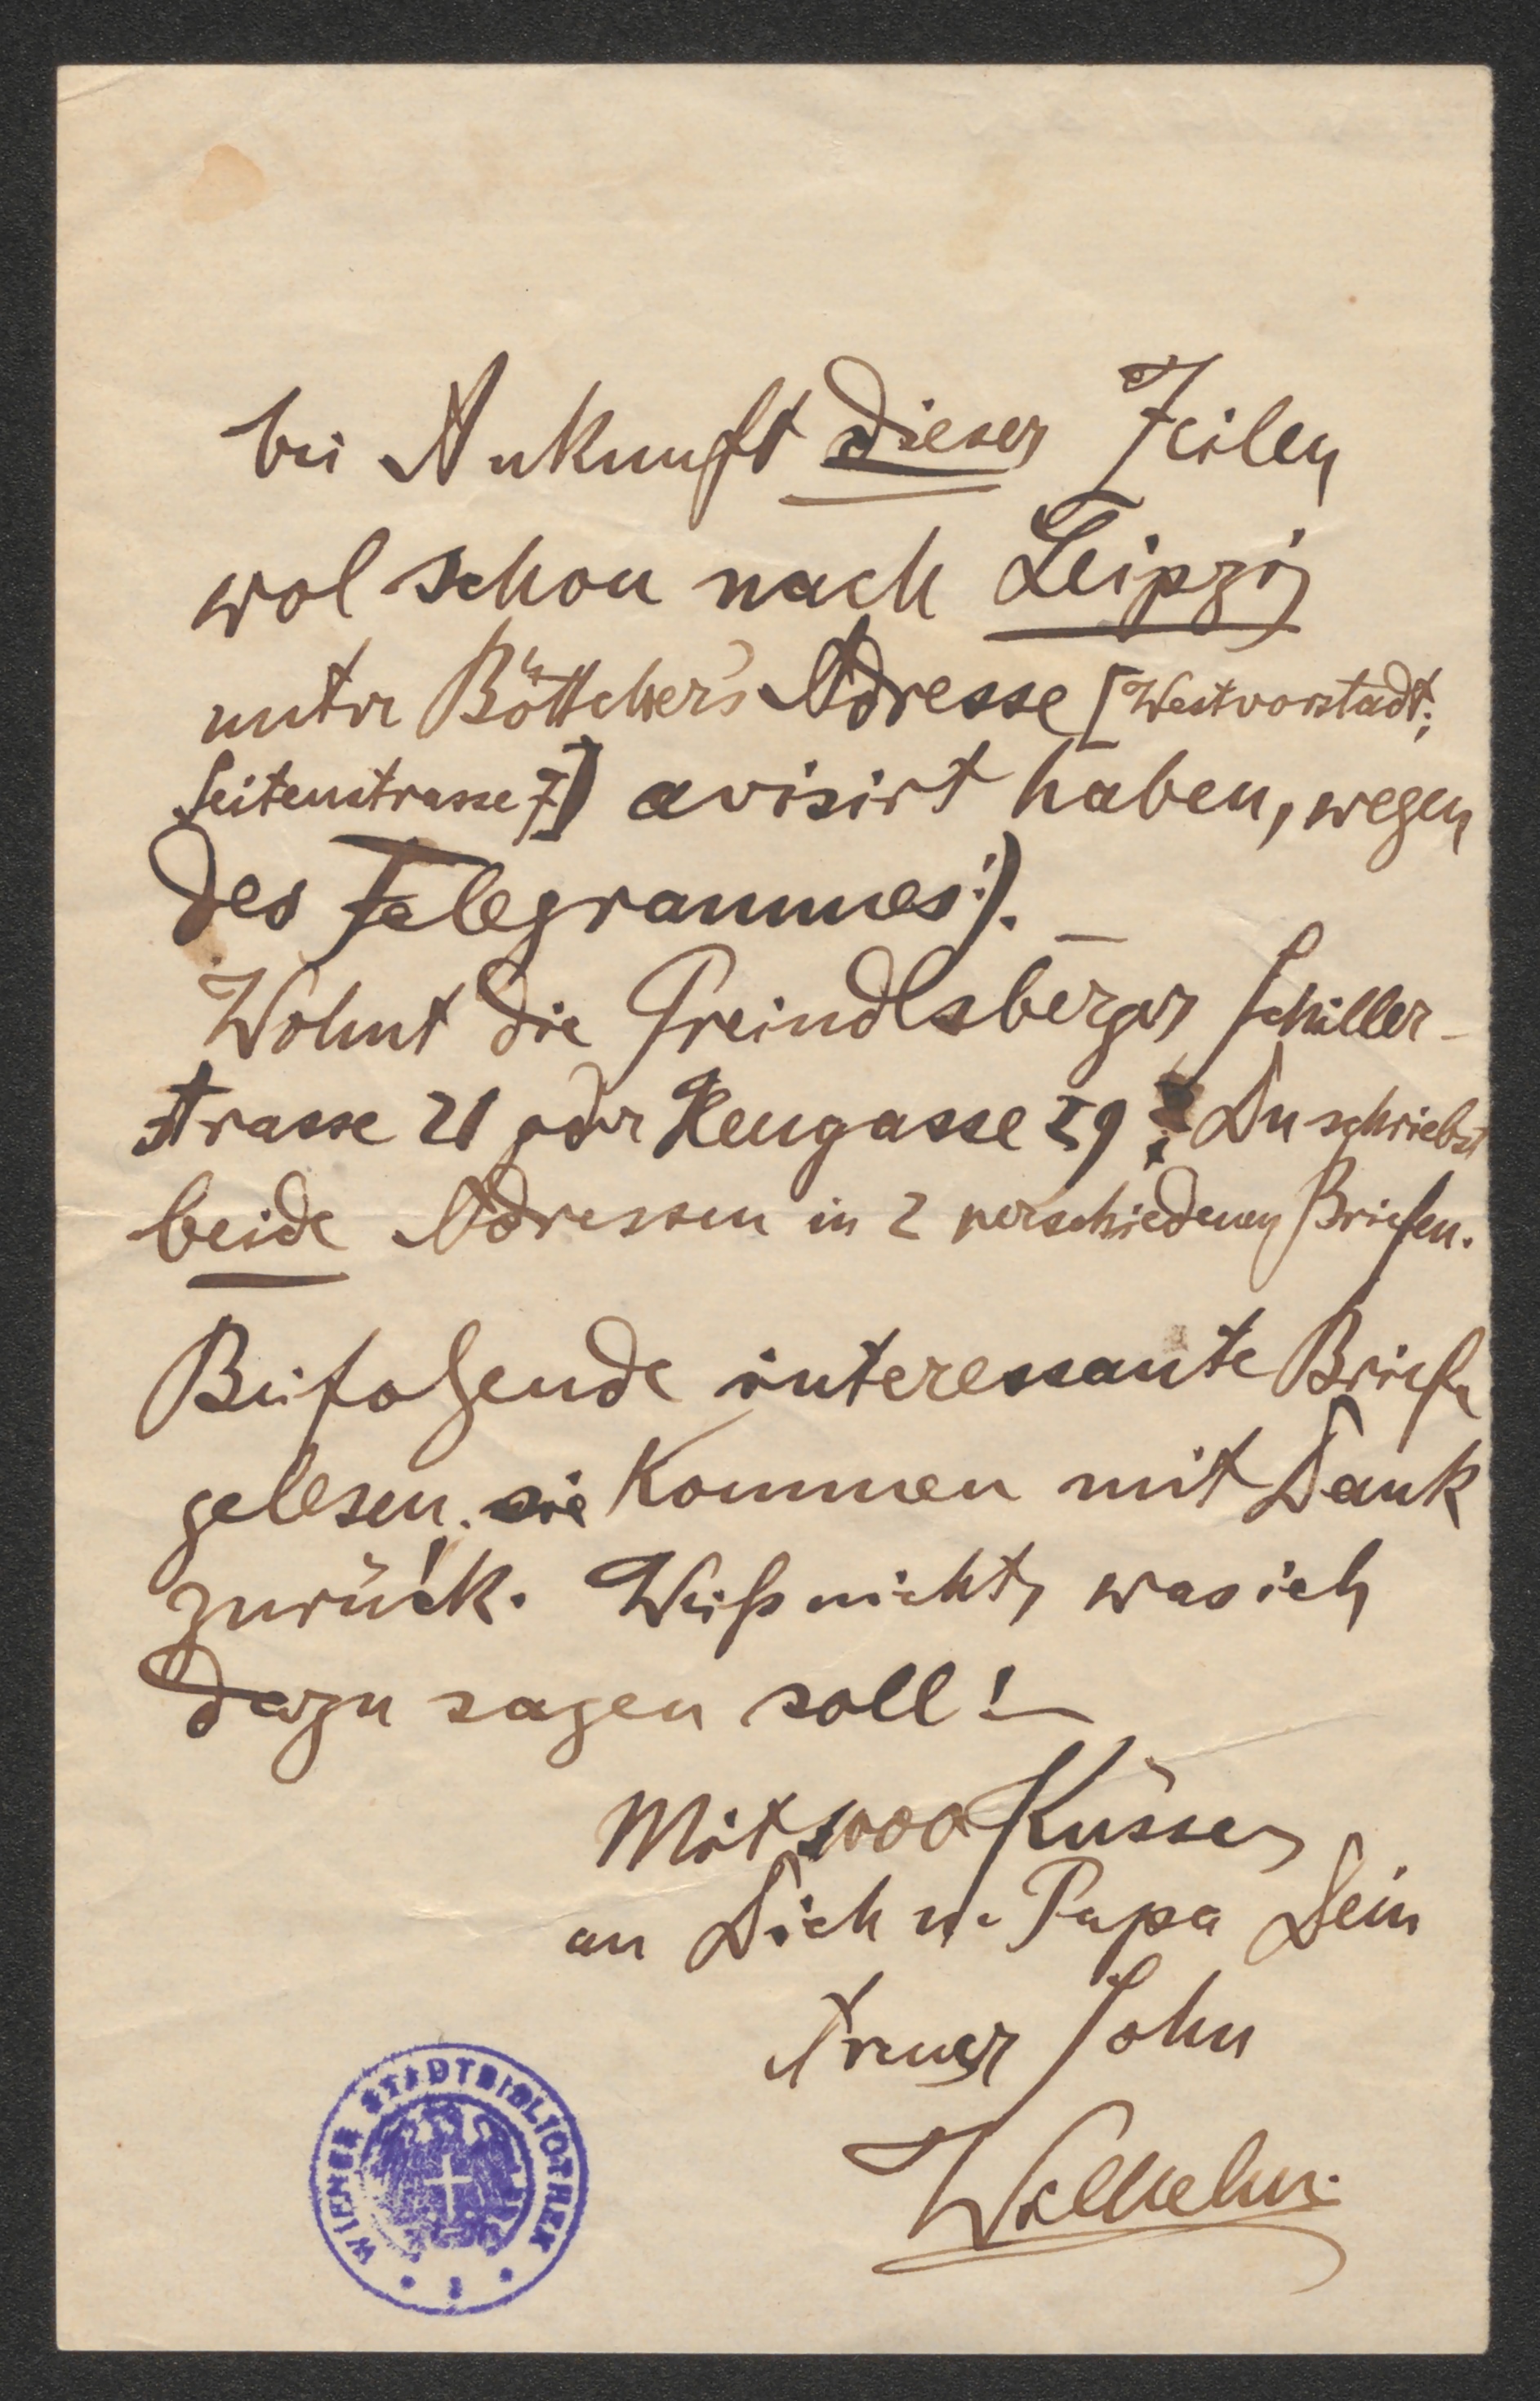 bei Ankunft dieser Zeilen
wol schon nach Leipzig
unter Böttcher's Adresse [Westvorstadt,
Seitenstrasse 7] avisirt haben, wegen
des Telegrammes:). —
Wohnt die Preindlsberger Schiller-
strasse 21 oder Heugasse 59? Du schriebst
beide Adressen in 2 verschiedenen Briefen.
Beifolgende interessante Briefe
gelesen. sie kommen mit Dank
zurück. Weiß nicht, was ich
dazu sagen soll! —
Mit 1000 Küssen
an Dich u. Papa Dein
treuer Sohn
Wilhelm.
WIENER STADTBIBLIOTHEK